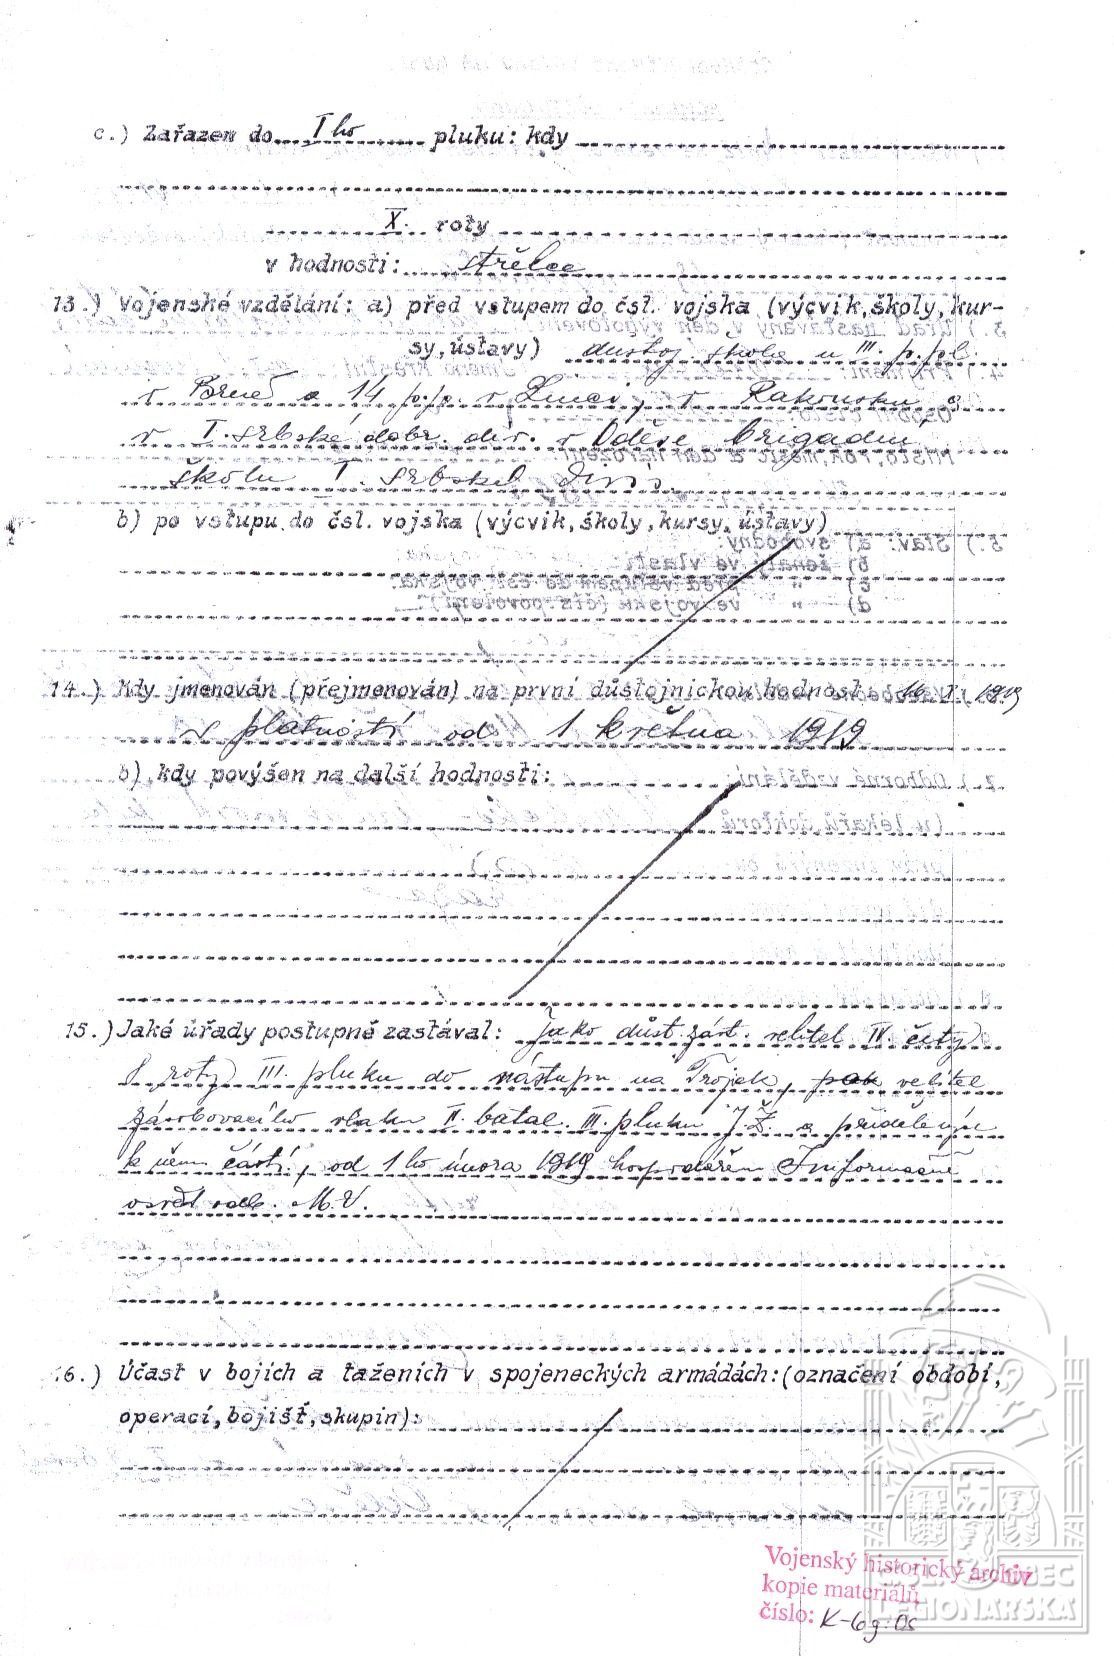 c.) Zařazen do I ho pluku: kdy
X. roty
v hodnosti: střelce
13.) Vojenské vzdělání: a) před vstupem do čsl. vojska (výcvik, školy, kur-
sy, ústavy) důstoj. škola u III. p. pl.
v Brně a 14 p.p. v Linci, v Rakousku a
v I. srbské dobr. div. v Oděse brigadní
školu I. srbské divis.
b) po vstupu do čsl. vojska (výcvik, školy, kursy, ústavy)
14.) Kdy jmenován (přejmenován) na první důstojnickou hodnost: 16. I. 1919
s platností od 1 května 1919
b) kdy povýšen na další hodnosti:
15.) Jaké úřady postupně zastával: jako důst. zást. velitel IV. čety
roty III. pluku do nástupu na Trojek, pak velitel
zásobovacího vlaku II. batal. III. pluku J.Ž. a přidělených
k němu částí, od 1 ho února 1919 hospodářem Informačně
osvět. odb. M.V.
16.) Účast v bojích a taženích v spojeneckých armádách: (označení období,
operací, bojišť, skupin):
Vojenský historický archiv
kopie materiálů
číslo: K-6
OBEC
LEGIONÁŘSKÁ